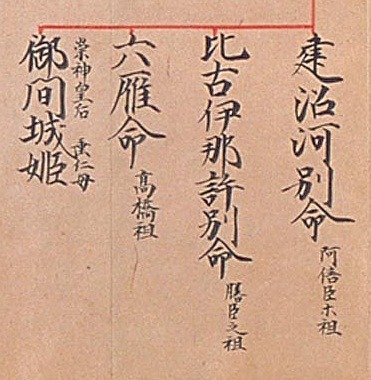 建沼河別命
阿倍臣ホ祖
比古伊那許別命
膳臣之祖
六雁命
髙橋祖
崇神皇后 垂仁母
御間城姫